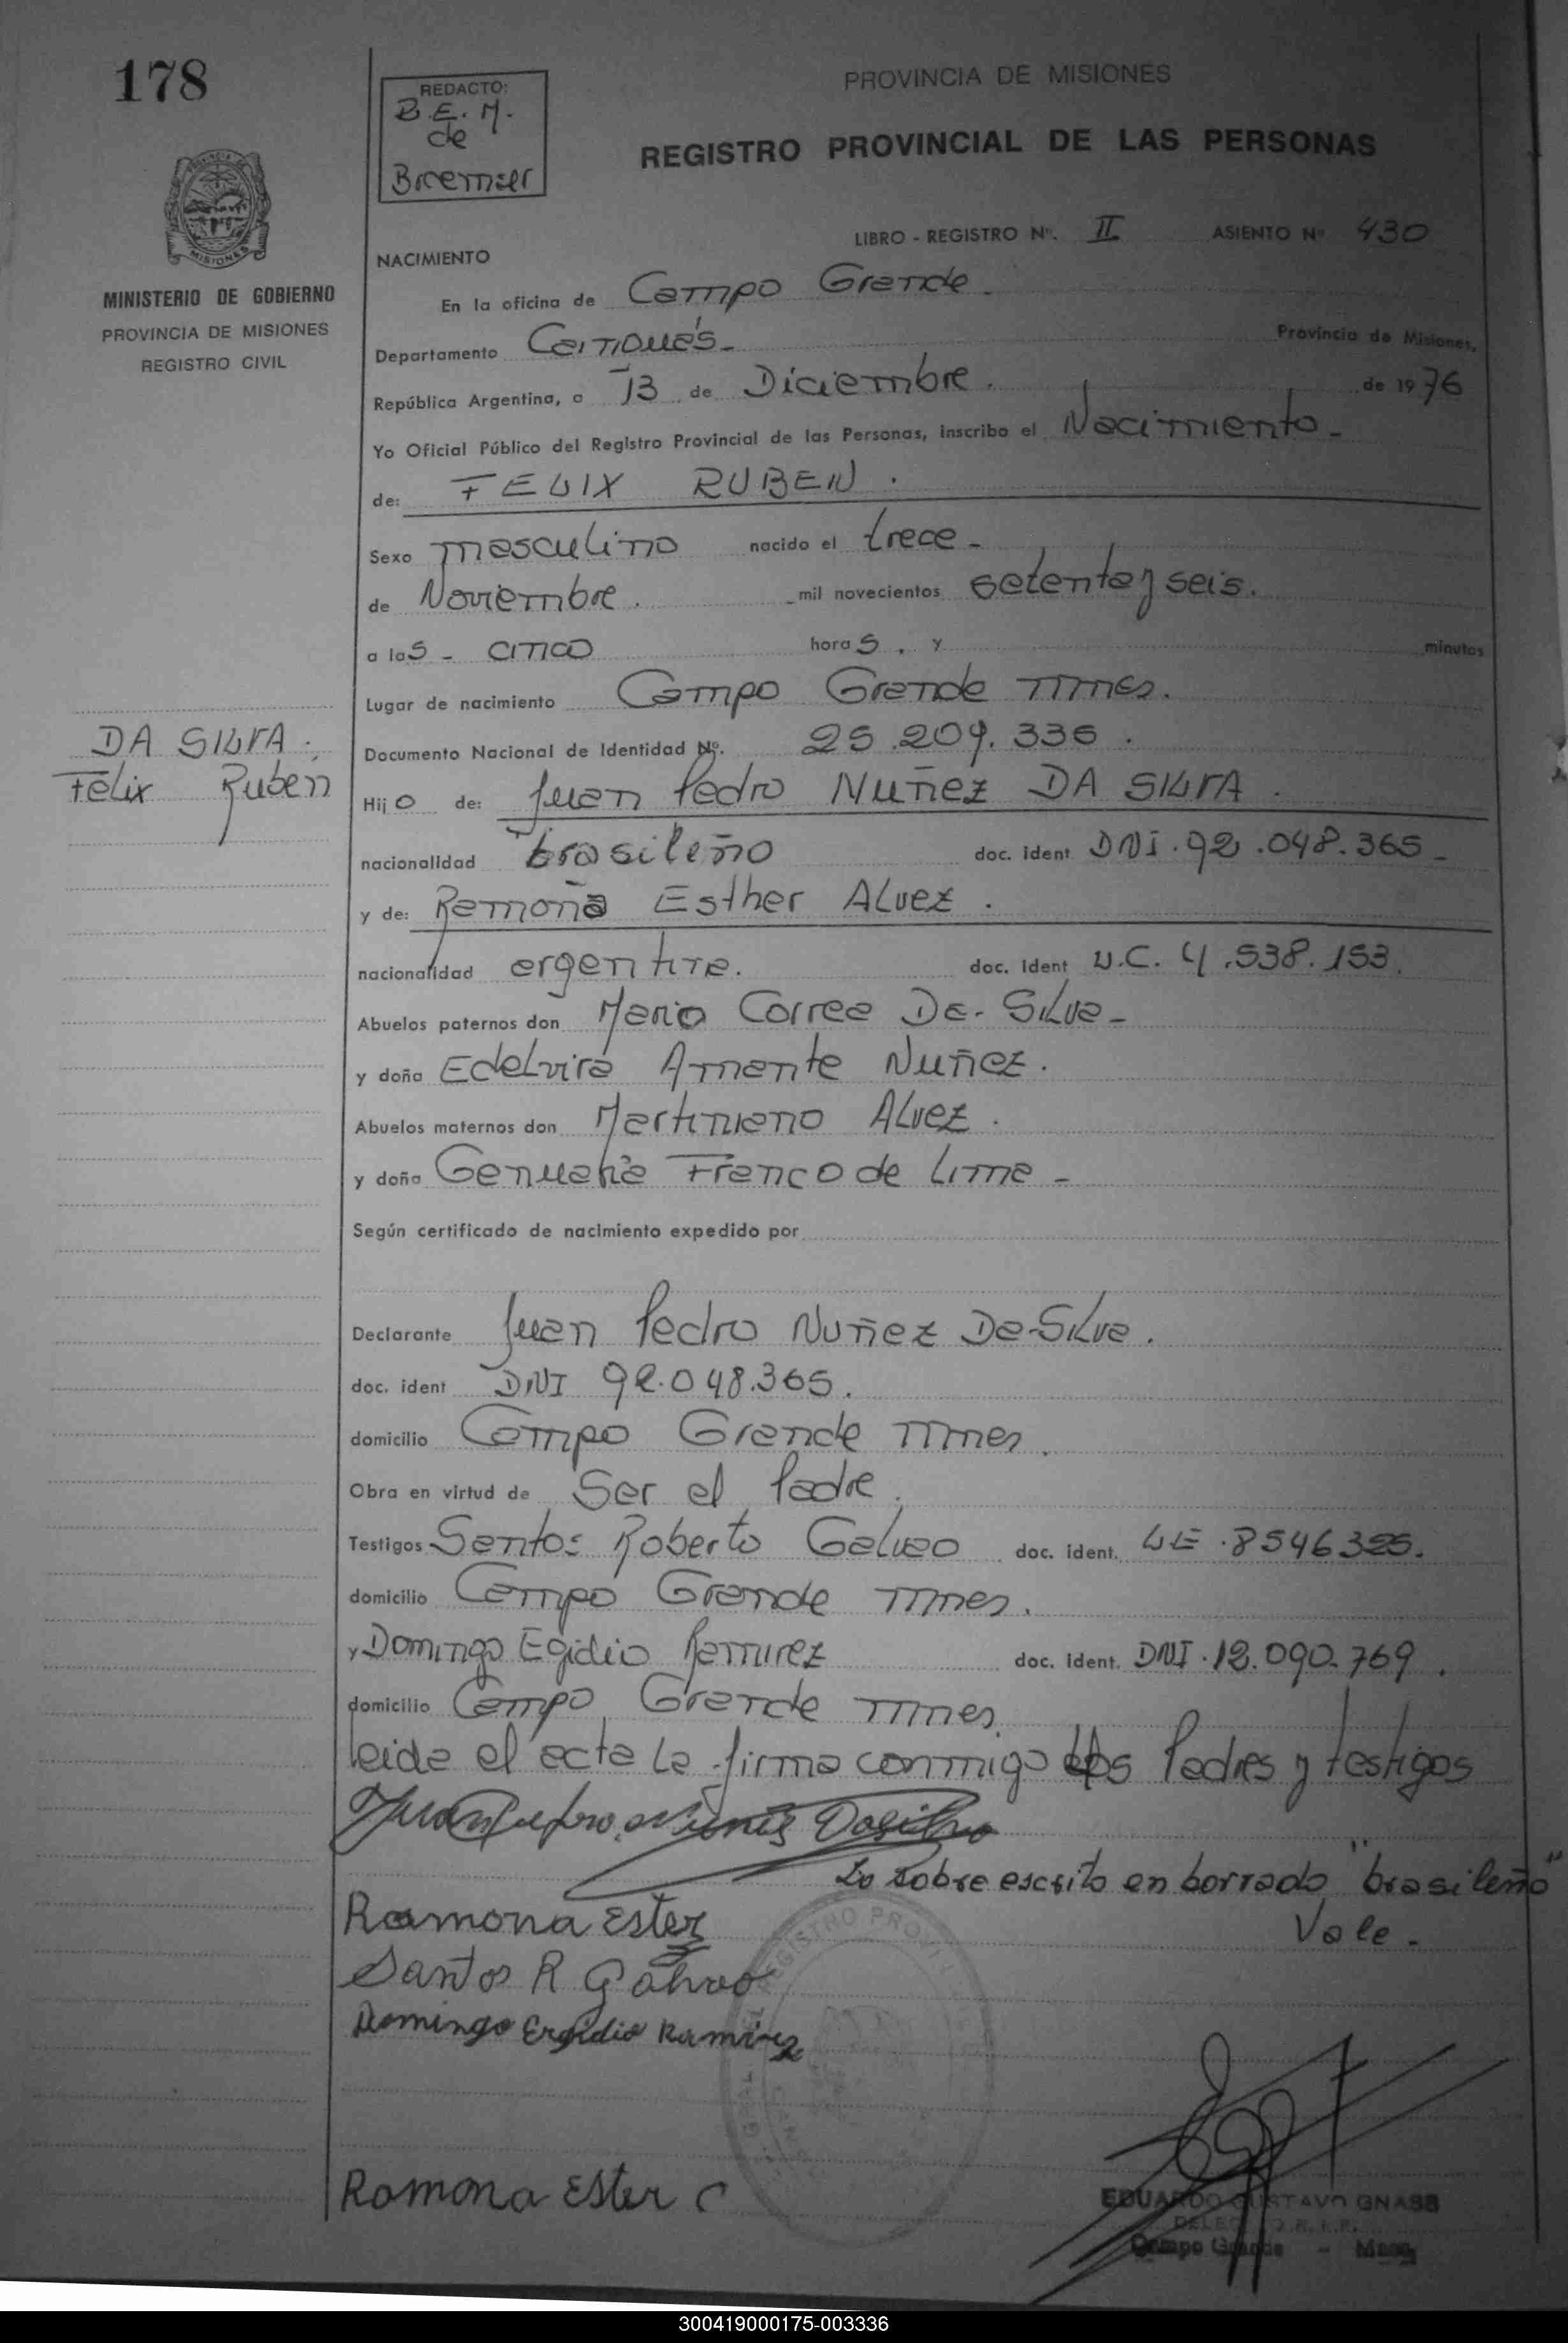 178
REDACTO:
B.E.M.
de
Bremser
PROVINCIA DE MISIONES
REGISTRO PROVINCIAL DE LAS PERSONAS
PROVINCIA DE
MISIONES
MINISTERIO DE GOBIERNO
PROVINCIA DE MISIONES
REGISTRO CIVIL
LIBRO - REGISTRO Nº. II ASIENTO Nº 430
NACIMIENTO
En la oficina de Campo Grande.
Departamento Cainguás - Provincia de Misiones,
República Argentina, a 13 de Diciembre. de 1976
Yo Oficial Público del Registro Provincial de las Personas, inscribo el Nacimiento -
de: FELIX RUBEN.
Sexo masculino nacido el trece -
de Noviembre. mil novecientos setenta y seis.
a las - cinco horas. y minutos
Lugar de nacimiento Campo Grande Mnes.
DA SILVA.
Félix Rubén
Documento Nacional de Identidad Nº. 25.209.336.
Hijo de: Juan Pedro NUÑEZ DA SILVA.
nacionalidad brasileño doc. ident DNI.92.048.365 -
y de: Ramona Esther ALVEZ.
nacionalidad argentina. doc. ident L.C. 4.538.153.
Abuelos paternos don Mario Correa Da-Silva -
y doña Edelvira Amante Nuñez.
Abuelos maternos don Martiniano Alvez.
y doña Genuaria Franco de Lima -
Según certificado de nacimiento expedido por
Declarante Juan Pedro Nuñez Da-Silva.
doc. ident DNI 92.048.365.
domicilio Campo Grande Mnes.
Obra en virtud de Ser el Padre.
Testigos Santos Roberto Galvao doc. ident. LE.8546325.
domicilio Campo Grande Mnes.
y Domingo Egidio Ramirez doc. ident. DNI.12.090.769.
domicilio Campo Grande Mnes
leida el acta la firma conmigo los Padres y testigos
Juan Pedro Nunes Dasilva
Lo sobre escrito en borrado "brasileño"
Vale -
Ramona Ester
Santos R Galvao
Domingo Egidio Ramirez
REGISTRO PROVI
GRAL
Ramona Ester C
EDUARDO GUSTAVO GNASS
Campo Grande - Mnes
300419000175-003336